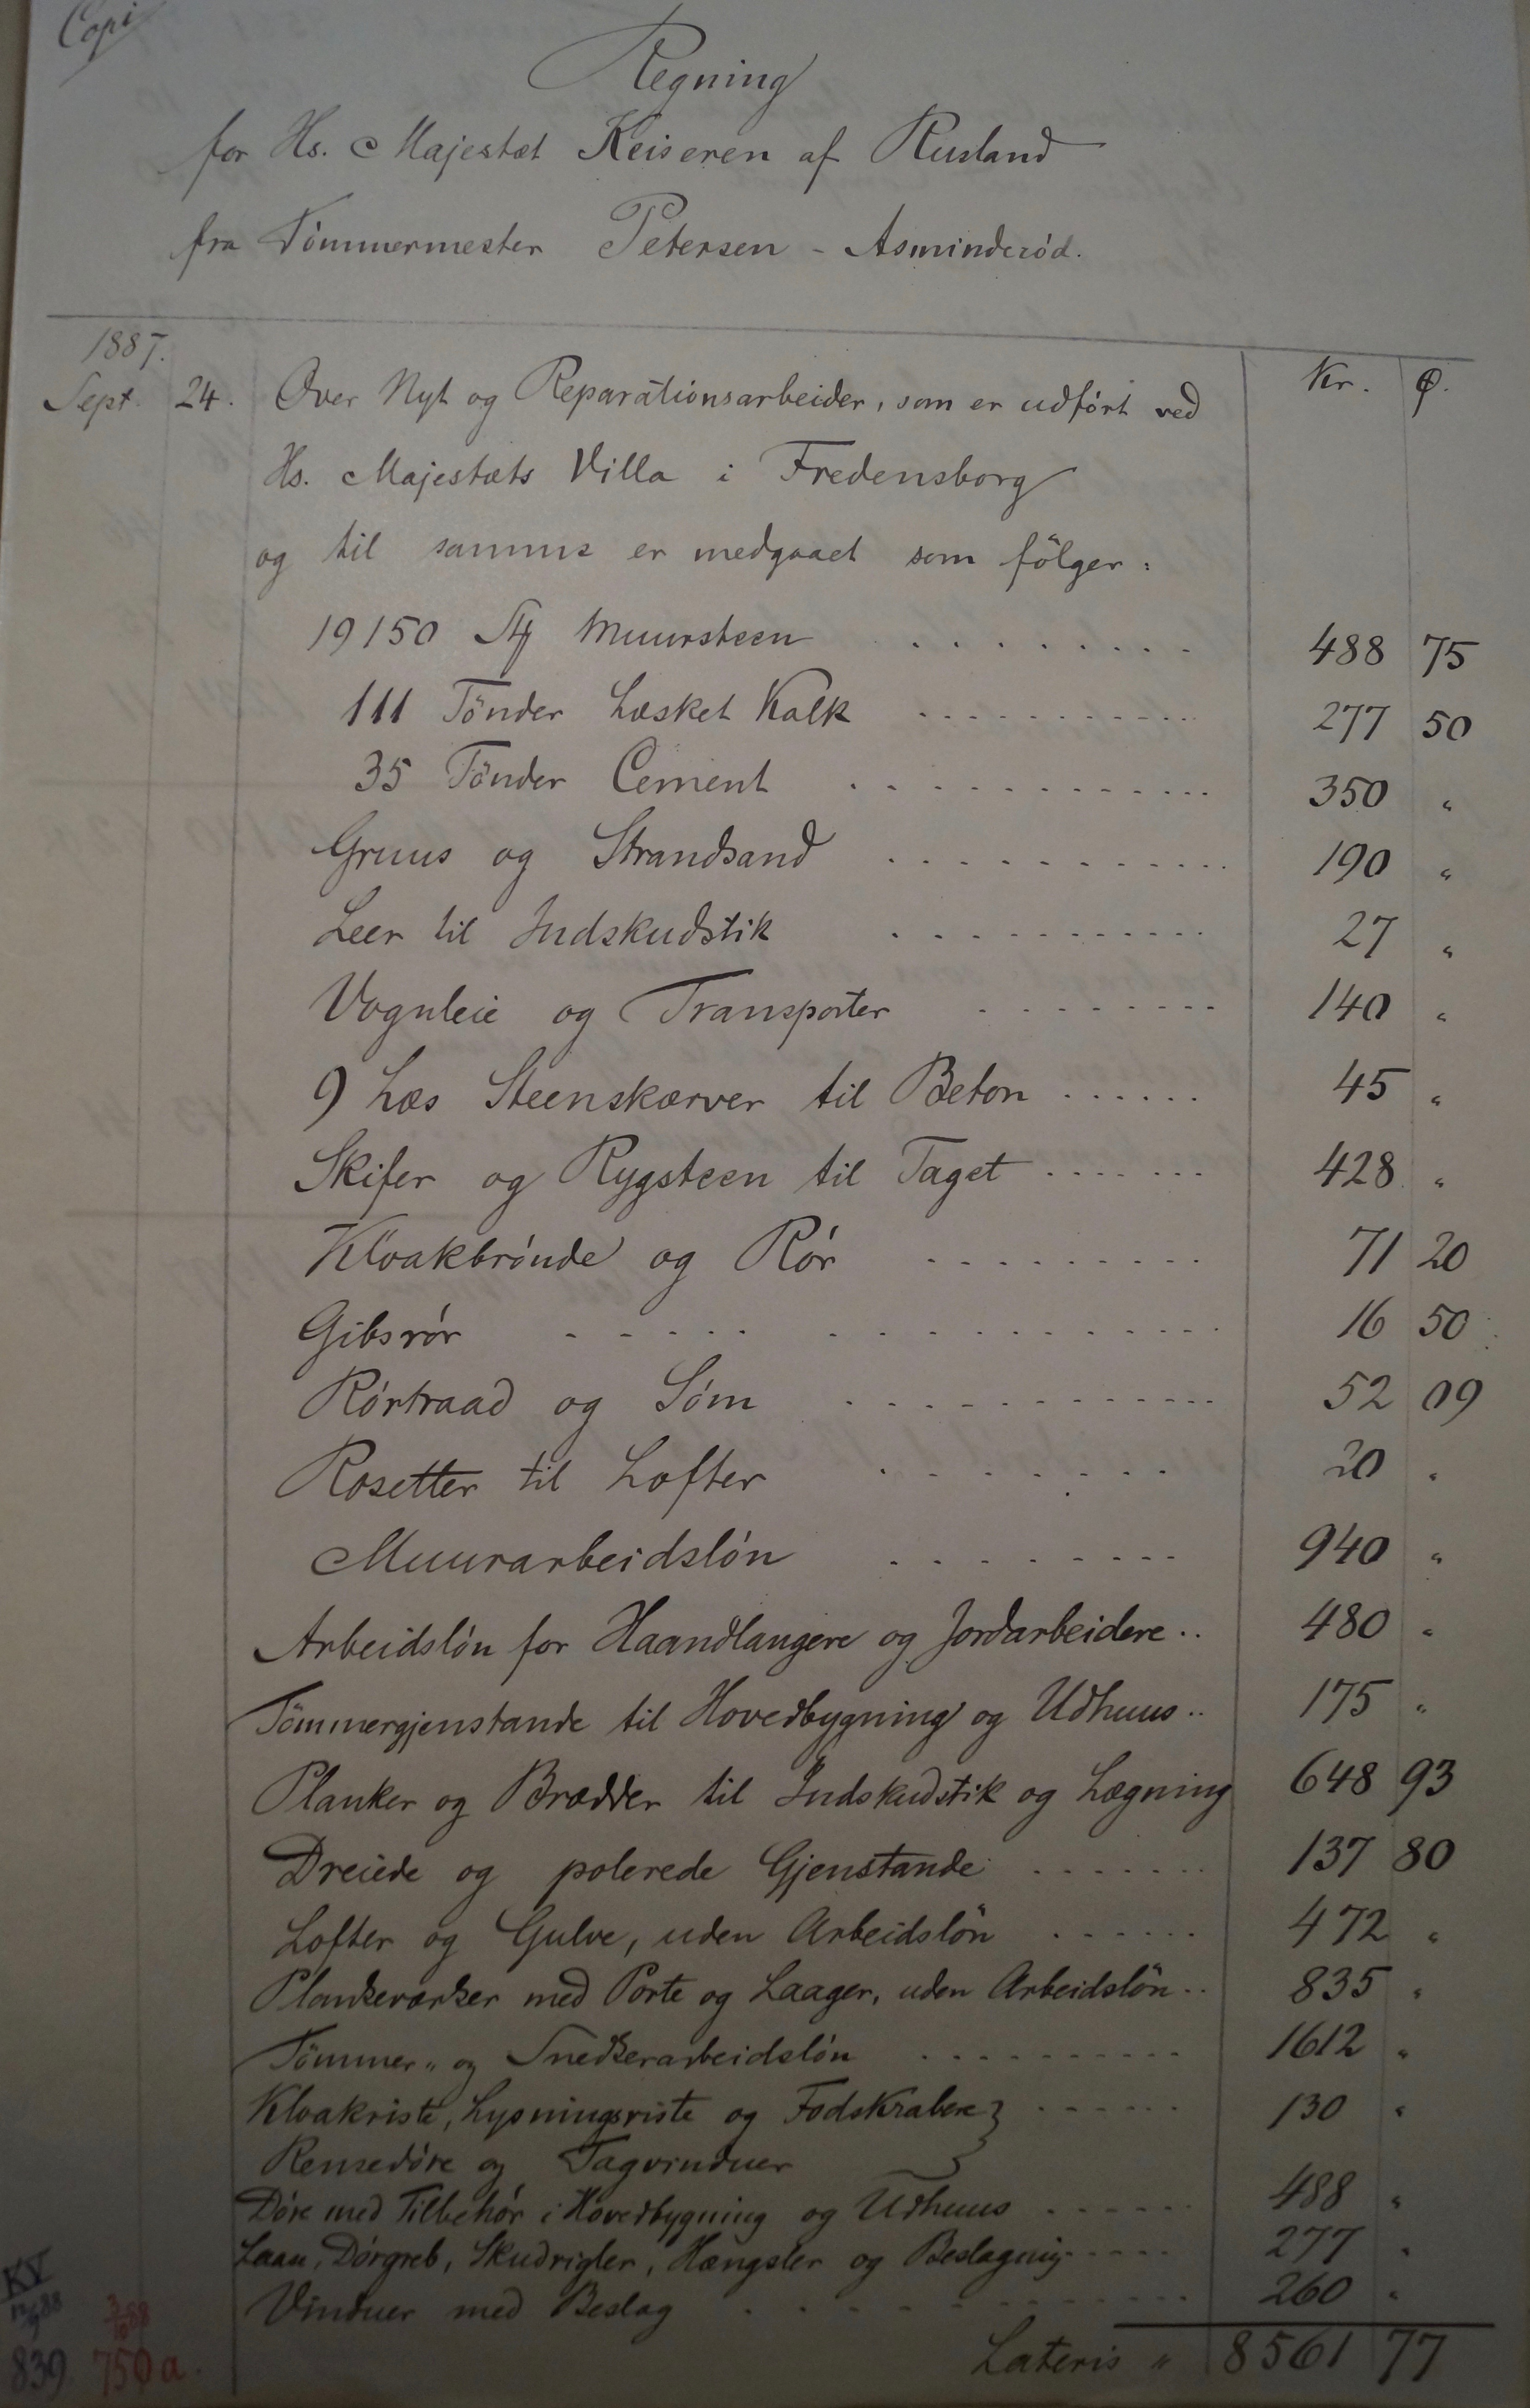 Copi
Regning
for Hs. Majestæt Keiseren af Rusland
fra Tömmermester Petersen - Asminderöd.
1887.
Kr. Ø.
Sept. 24. Over Nyt og Reparationsarbeider, som er udført ved
Hs. Majestæts Villa i Fredensborg
og til samme er medgaaet som følger:
19150 Stk Muursteen 488 75
111 Tönder Læsket Kalk 277 50
35 Tönder Cement 350 "
Gruus og Strandsand 190 "
Leer til Indskudstik 27 "
Vognleie og Transporter 140 "
9 Læs Steenskærver til Beton 45 "
Skifer og Rygsteen til Taget 428 "
Kloakbrönde og Rör 71 20
Gibsrör 16 50
Rörtraad og Söm 52 09
Rosetter til Lofter 20 "
Muurarbeidslön 940 "
Arbeidslön for Haandlangere og Jordarbeidere 480 "
Tömmergjenstande til Hovedbygning og Udhuus 175 "
Planker og Brædder til Indskudstik og Lægning 648 93
Dreiede og polerede Gjenstande 137 80
Lofter og Gulve, uden Arbeidslön 472 "
Plankeværker med Porte og Laager, uden Arbeidslön 835 "
Tömmer " og Snedkerarbeidslön 1612 "
Kloakriste, Lysningsriste og Fodskrabere } 130 "
Rensedöre og Tagvinduer
Döre med Tilbehör i Hovedbygning og Udhuus 488 "
Laase, Dörgreb, Skudrigler, Hængsler og Beslagning 277 "
Vinduer med Beslag 260 "
Lateris " 8561 77
KV
839 750a.